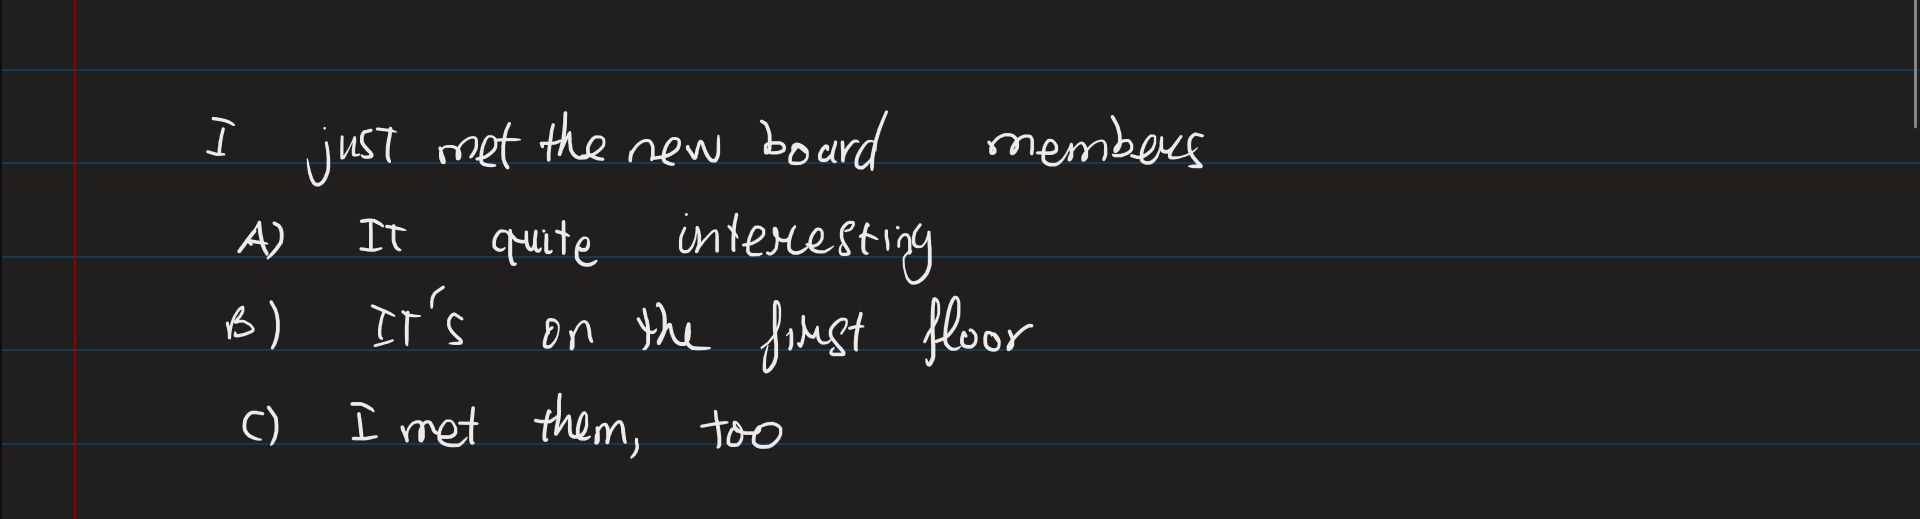 I just met the new board members
A) It quite interesting
B) It's on the first floor
C) I met them, too